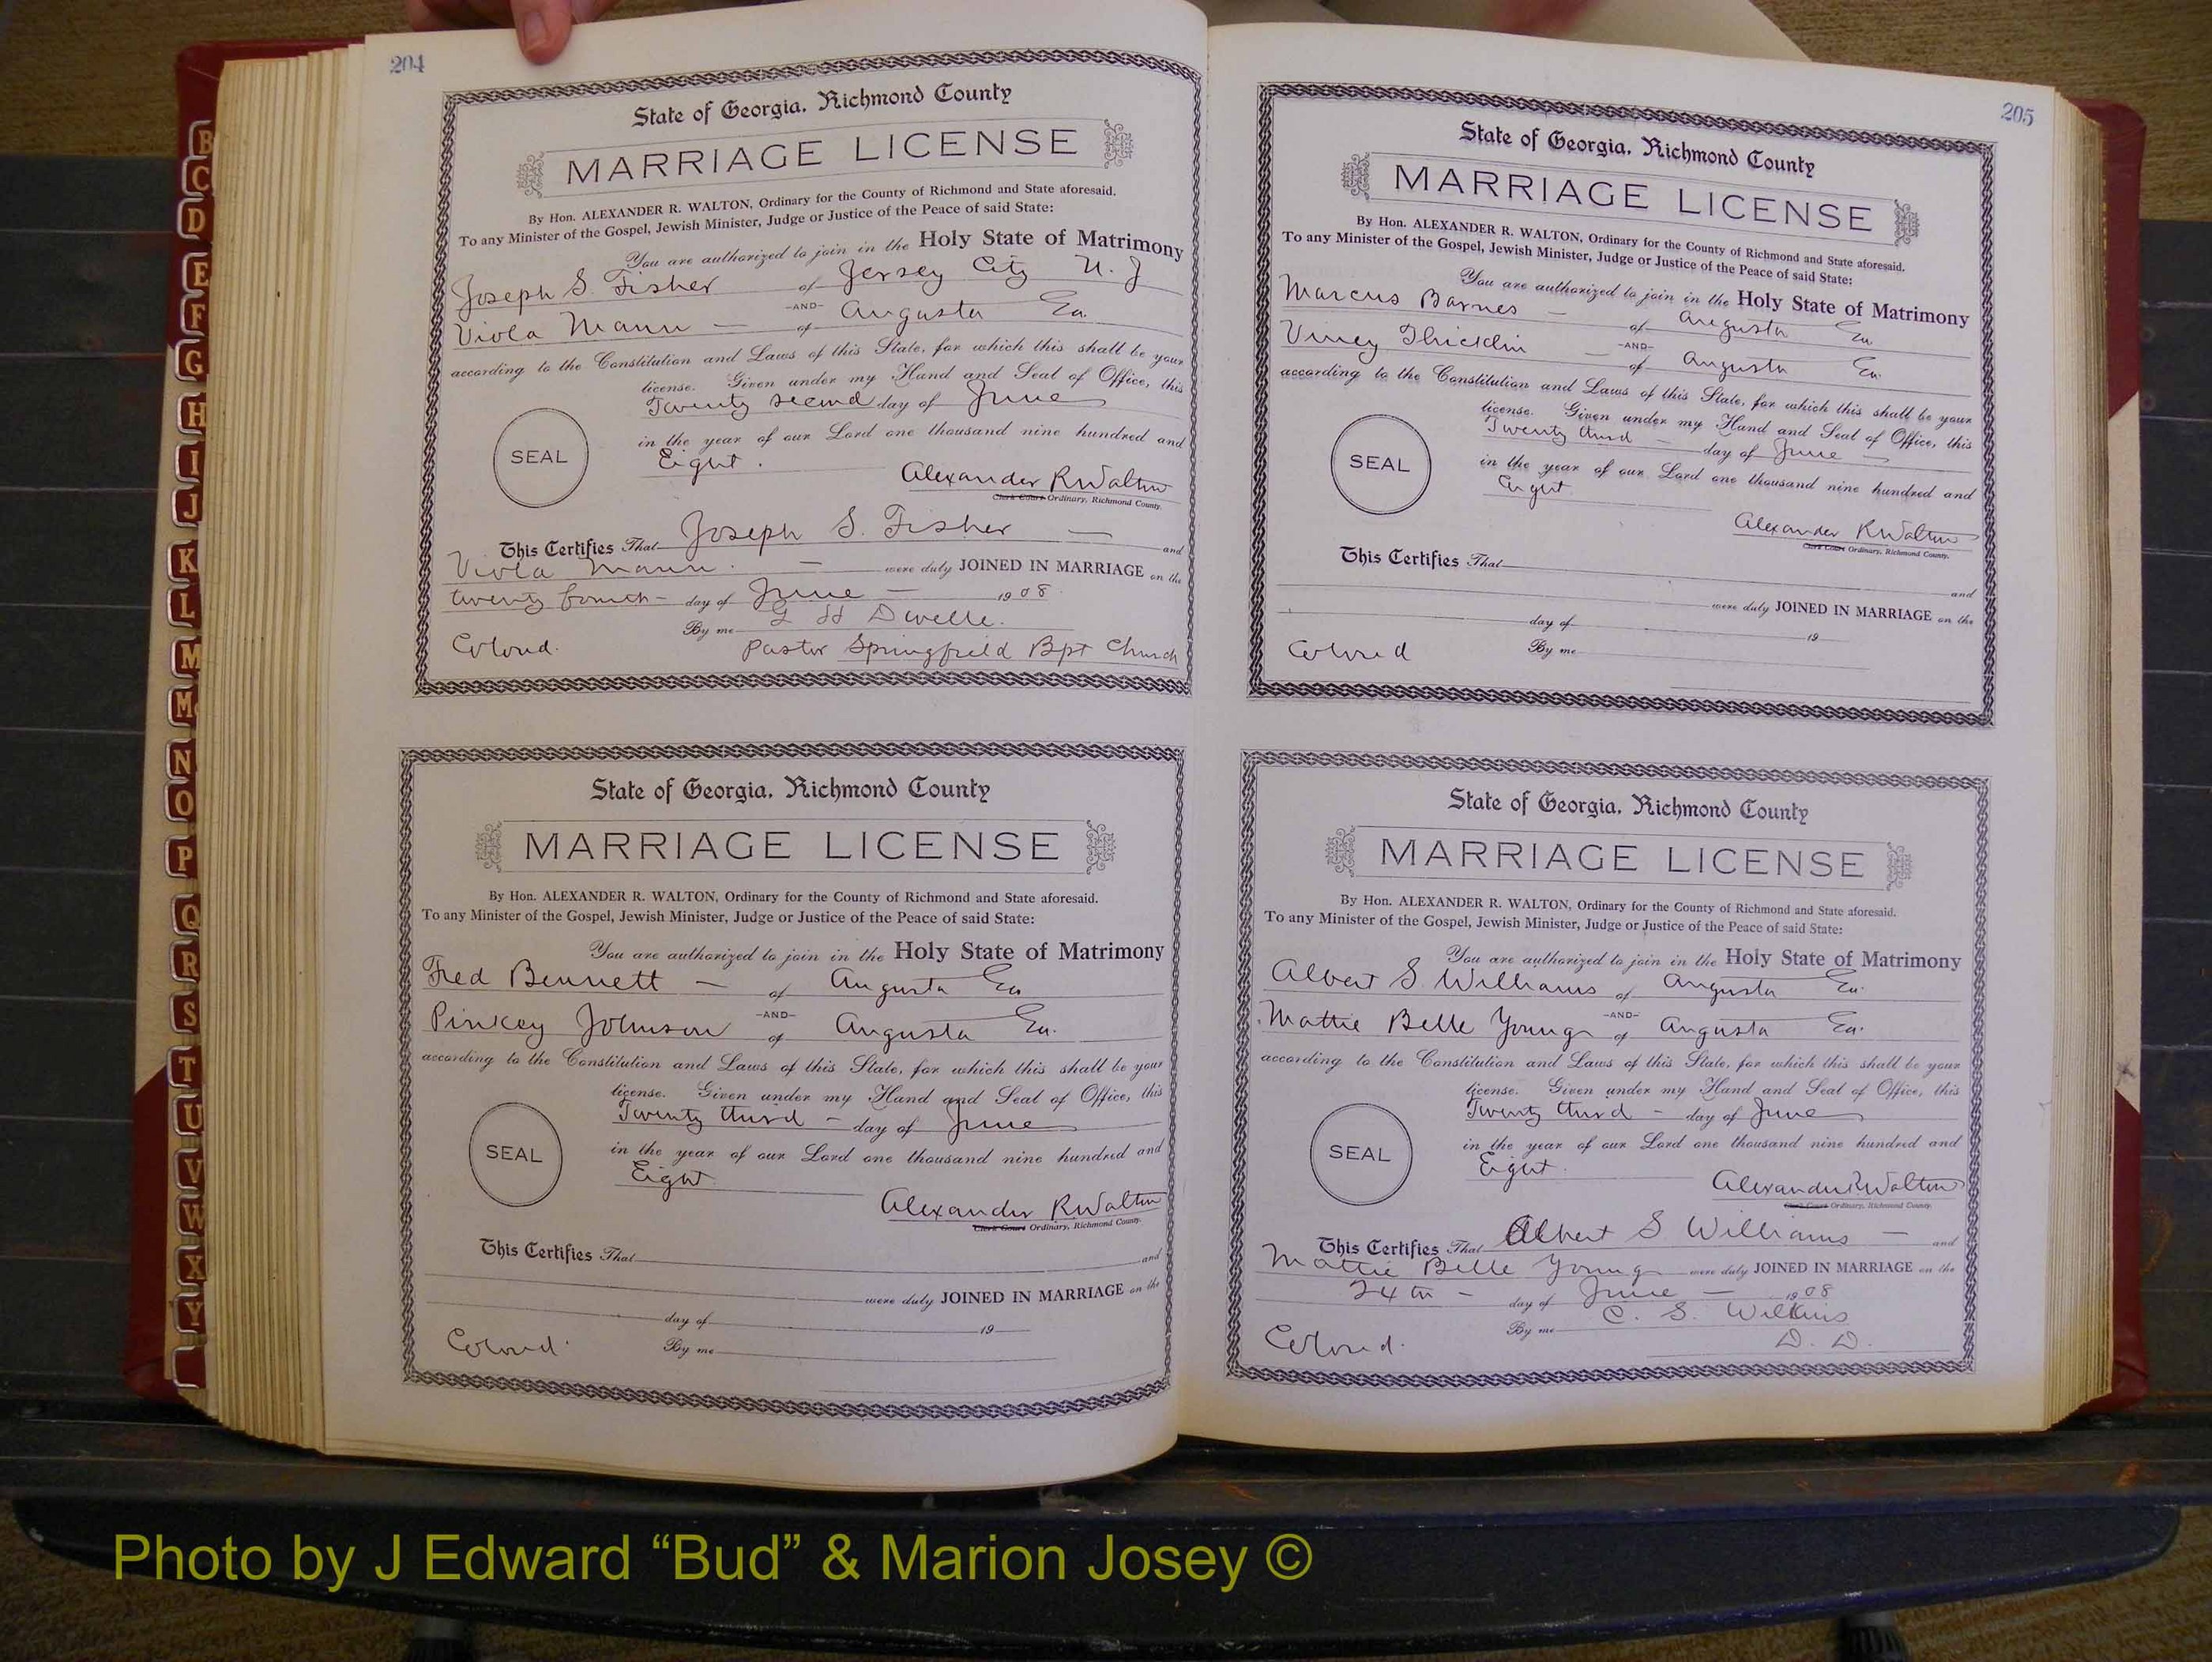 204
State of Georgia, Richmond County
MARRIAGE LICENSE
By Hon. ALEXANDER R. WALTON, Ordinary for the County of Richmond and State aforesaid.
To any Minister of the Gospel, Jewish Minister, Judge or Justice of the Peace of said State:
You are authorized to join in the Holy State of Matrimony
Joseph S. Fisher of Jersey City N. J
-AND-
Viola Mann - of Augusta Ga.
according to the Constitution and Laws of this State, for which this shall be your
license. Given under my Hand and Seal of Office, this
Twenty second day of June
in the year of our Lord one thousand nine hundred and
SEAL
Eight.
Alexander R Walton
Clerk Court Ordinary, Richmond County.
This Certifies That Joseph S. Fisher - and
Viola Mann. - were duly JOINED IN MARRIAGE on the
twenty fourth - day of June - 1908.
By me G H Dwelle.
Colored. Pastor Springfield Bpt Church
State of Georgia, Richmond County
MARRIAGE LICENSE
By Hon. ALEXANDER R. WALTON, Ordinary for the County of Richmond and State aforesaid.
To any Minister of the Gospel, Jewish Minister, Judge or Justice of the Peace of said State:
You are authorized to join in the Holy State of Matrimony
Fred Bennett - of Augusta Ga
-AND-
Pinkey Johnson of Augusta Ga.
according to the Constitution and Laws of this State, for which this shall be your
license. Given under my Hand and Seal of Office, this
Twenty third - day of June
in the year of our Lord one thousand nine hundred and
SEAL
Eight
Alexander R Walton
Clerk Court Ordinary, Richmond County.
This Certifies That and
were duly JOINED IN MARRIAGE on the
day of 19
Colored. By me
205
State of Georgia, Richmond County
MARRIAGE LICENSE
By Hon. ALEXANDER R. WALTON, Ordinary for the County of Richmond and State aforesaid.
To any Minister of the Gospel, Jewish Minister, Judge or Justice of the Peace of said State:
You are authorized to join in the Holy State of Matrimony
Marcus Barnes - of Augusta Ga.
-AND-
Viney of Augusta Ga.
according to the Constitution and Laws of this State, for which this shall be your
license. Given under my Hand and Seal of Office, this
Twenty third - day of June
in the year of our Lord one thousand nine hundred and
SEAL
Eight
Alexander R Walton
Clerk Court Ordinary, Richmond County.
This Certifies That and
were duly JOINED IN MARRIAGE on the
day of 19
Colored By me
State of Georgia, Richmond County
MARRIAGE LICENSE
By Hon. ALEXANDER R. WALTON, Ordinary for the County of Richmond and State aforesaid.
To any Minister of the Gospel, Jewish Minister, Judge or Justice of the Peace of said State:
You are authorized to join in the Holy State of Matrimony
Albert S. Williams of Augusta Ga.
-AND-
Mattie Belle Young of Augusta Ga.
according to the Constitution and Laws of this State, for which this shall be your
license. Given under my Hand and Seal of Office, this
Twenty third - day of June
in the year of our Lord one thousand nine hundred and
SEAL
Eight.
Alexander R Walton
Clerk Court Ordinary, Richmond County.
This Certifies That Albert S Williams - and
Mattie Belle Young were duly JOINED IN MARRIAGE on the
24th - day of June - 1908
By me C. S. Wilkins
Colored. D. D.
B
C
D
E
F
G
H
I
J
K
L
M
Mc
N
O
P
Q
R
S
T
U
V
W
X
Y
Photo by J Edward “Bud” & Marion Josey ©